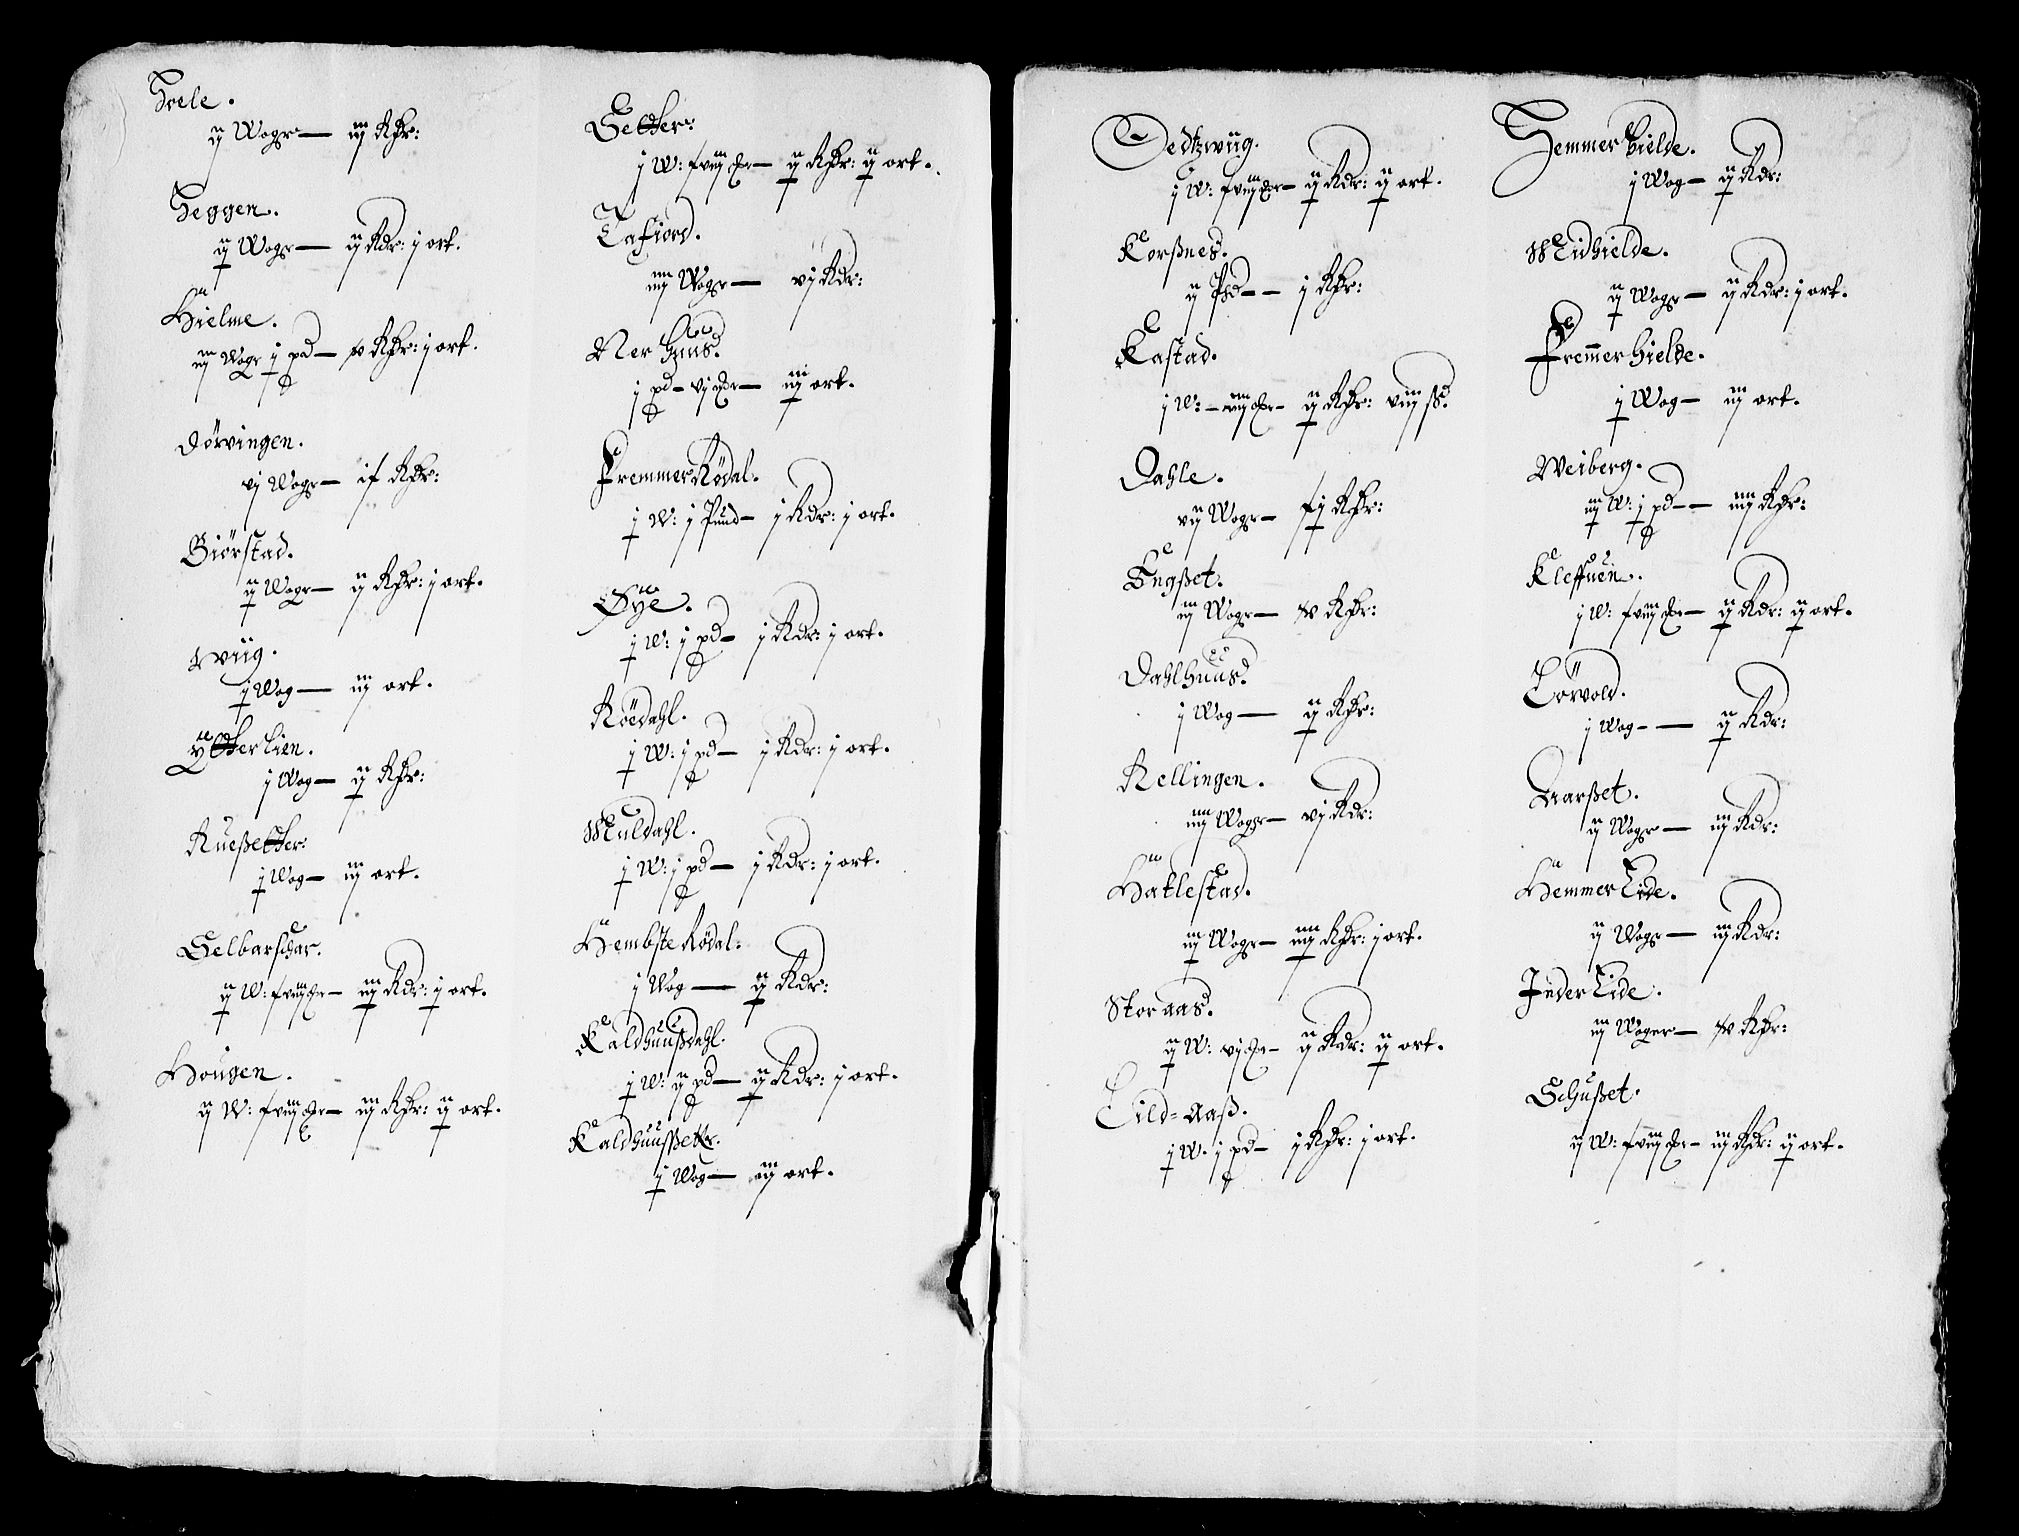 Hoele.
ij Wogr — iij Rdr:
Heggen.
ij Wogr — ij Rdr: j ort.
Hielme.
iij Wogr j pd — Rdr: j ort.
Dörvingen.
vj Wogr — Rdr:
Giörstad.
ij Wogr — ij Rdr: j ort.
Wiig.
j Wog — iij ort.
Ÿtterlien.
j Wog — ij Rdr:
Rueßetter:
j Wog — iij ort.
Selbarschar.
ij W: — iij Rdr: j ort.
Hougen.
ij W: — iij Rdr: ij ort.
Setter:
j W: — ij Rdr: ij ort.
Tafiord.
iiij Wogr — vj Rdr:
Ner Huus.
j pd — vj — iij ort.
Fremmer Rödal.
j W: j Pund — j Rdr: j ort.
Øÿe.
j W: j pd — j Rdr: j ort.
Röedahl.
j W: j pd — j Rdr: j ort.
Muldahl.
j W: j pd — j Rdr: j ort.
Hembste Rödal:
j Wog — ij Rdr:
Kaldhuußdahl.
j W: ij pd — ij Rdr: j ort.
Kaldhuusßetter.
j Wog — iij ort.
Sedtzwiig.
j W: — ij Rdr: ij ort.
Korßnes.
ij Pd — j Rdr:
Kastad.
j W: — ij Rdr: viij ß.
Dahle.
vij Wogr — Rdr:
Engßet.
iij Wogr — Rdr:
Dahlhuus.
j Wog — ij Rdr:
Rellingen.
iiij Wogr — vj Rdr:
Hatlestad.
iij Wogr — iiij Rdr: j ort.
Storaas.
ij W: vj — ij Rdr: ij ort.
Lild-Aaß.
j W. j pd — j Rdr: j ort.
Hemmer Gielde.
j Wog — ij Rdr:
Midhielde.
ij Wogr — ij Rdr: j ort.
Fremmer Hielde.
j Wog — iij ort.
Weiberg.
iij W: j pd — iiij Rdr:
Kleffuen.
j W: — ij Rdr: ij ort.
Lörvold.
j Wog — ij Rdr:
Aarßet.
ij Wogr — iij Rdr:
Hemmer Eide.
ij Wogr — iij Rdr:
Inder Eide.
iij Woger — Rdr:
Schußet.
ij W: — iij Rdr: ij ort.